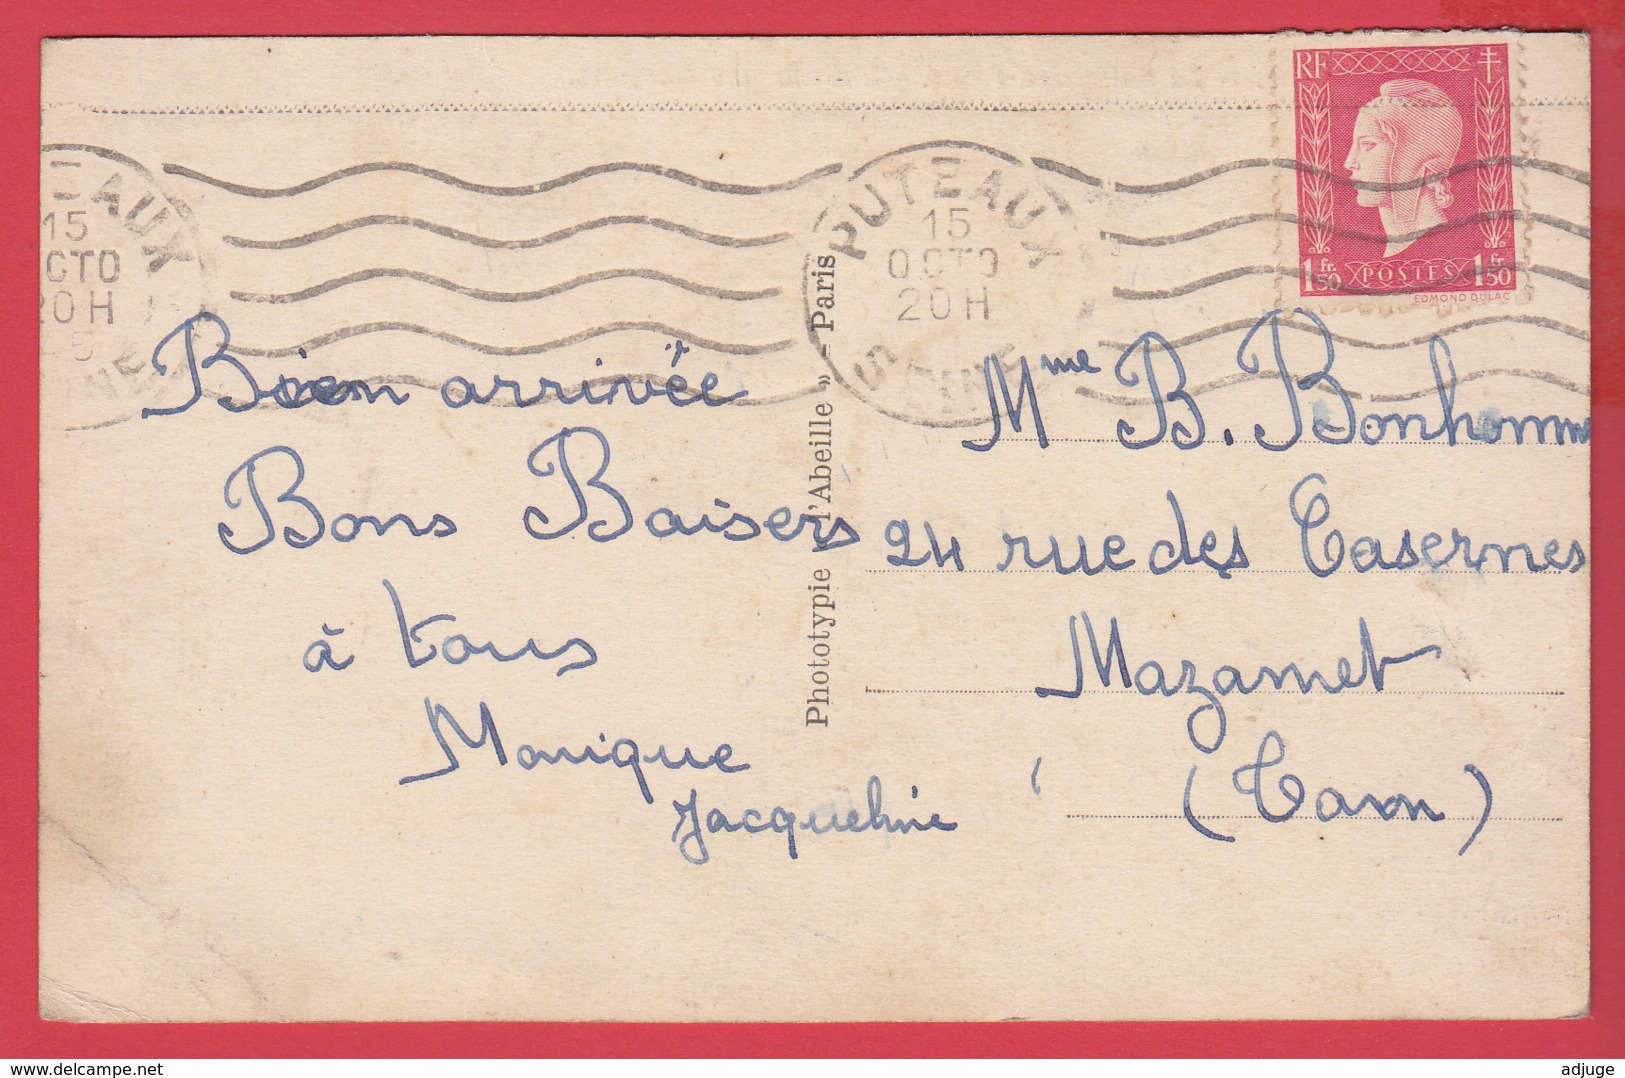 RF
1 fr. 50 POSTES 1 fr. 50
EDMOND DULAC
EAUX
15
OCTO
20 H
PUTEAUX
15
OCTO
20 H
SEINE
Bien arrivée
Bons Baisers
à tous
Monique
Jacqueline
Photototypie « l'Abeille » – Paris
Mme B. Bonhomme
24 rue des Casernes
Mazamet
(Tarn)
delcampe.net
adjuge